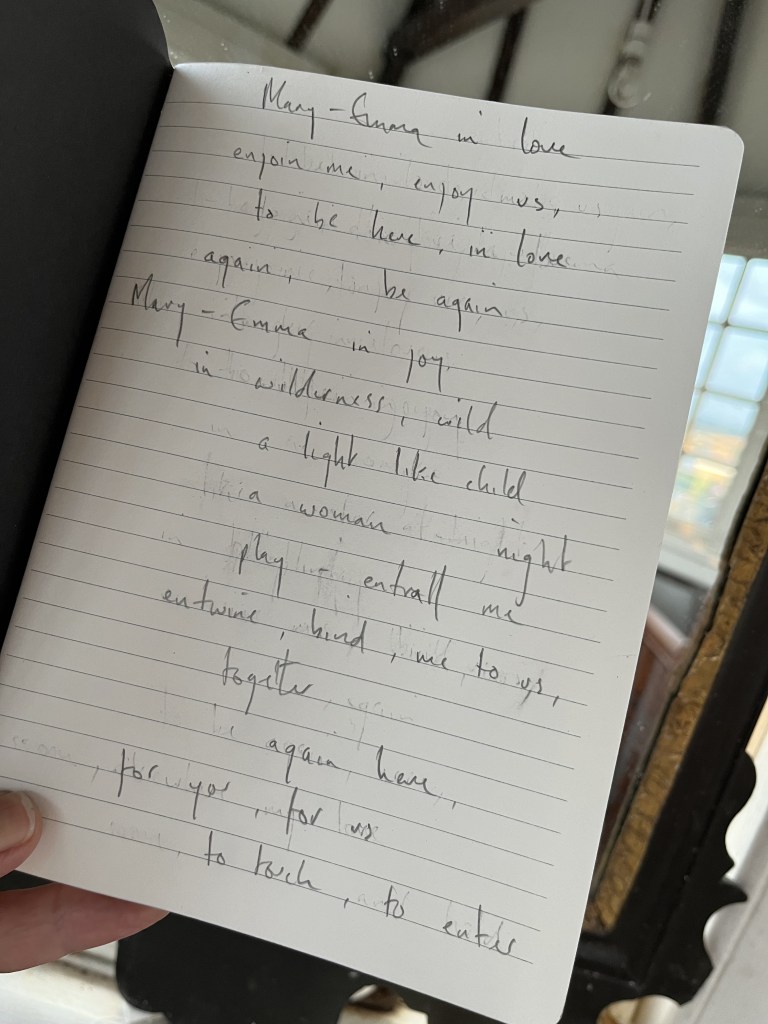 Mary - Emma in love
enjoin me, enjoy us,
to be here, in love
again, be again
Mary - Emma in joy
in wilderness, wild
a light like child
a woman night
play - entrall me
entwine, bind, me to us,
together
again here,
for you, for us
to touch, to enter